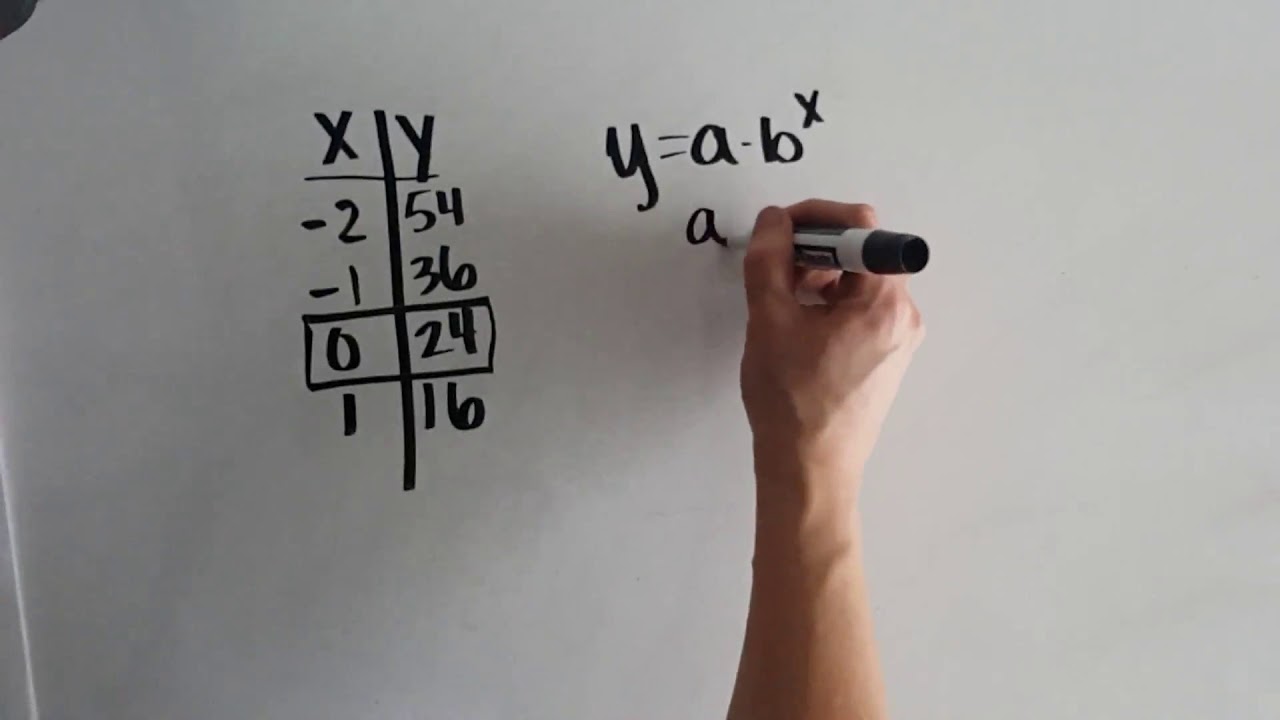 X Y
-2 54
-1 36
0 24
1 16
y=a·b^x
a